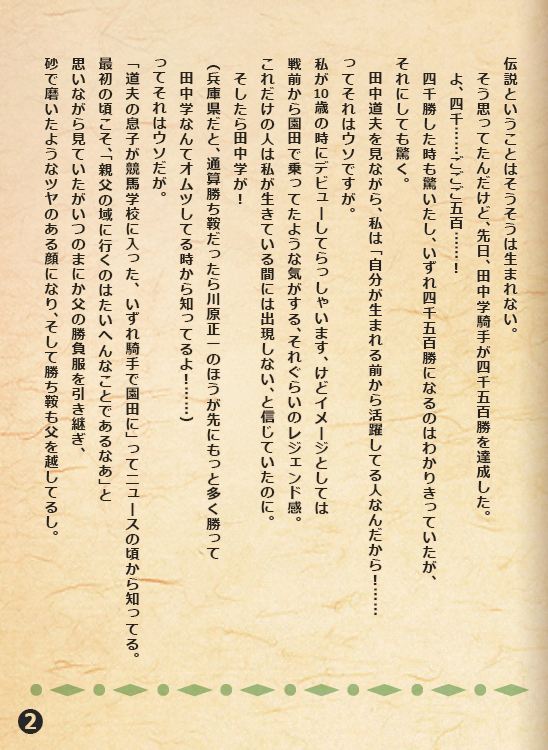 伝説ということはそうそうは生まれない。
そう思ってたんだけど、先日、田中学騎手が四千五百勝を達成した。
よ、四千……ごごご五百……！
四千勝した時も驚いたし、いずれ四千五百勝になるのはわかりきっていたが、
それにしても驚く。
田中道夫を見ながら、私は「自分が生まれる前から活躍してる人なんだから！……
ってそれはウソですが。
私が10歳の時にデビューしてらっしゃいます、けどイメージとしては
戦前から園田で乗ってたような気がする、それぐらいのレジェンド感。
これだけの人は私が生きている間には出現しない、と信じていたのに。
そしたら田中学が！
（兵庫県だと、通算勝ち鞍だったら川原正一のほうが先にもっと多く勝って
田中学なんてオムツしてる時から知ってるよ！……）
ってそれはウソだが。
「道夫の息子が競馬学校に入った、いずれ騎手で園田に」ってニュースの頃から知ってる。
最初の頃こそ、「親父の域に行くのはたいへんなことであるなあ」と
思いながら見ていたがいつのまにか父の勝負服を引き継ぎ、
砂で磨いたようなツヤのある顔になり、そして勝ち鞍も父を越してるし。
2